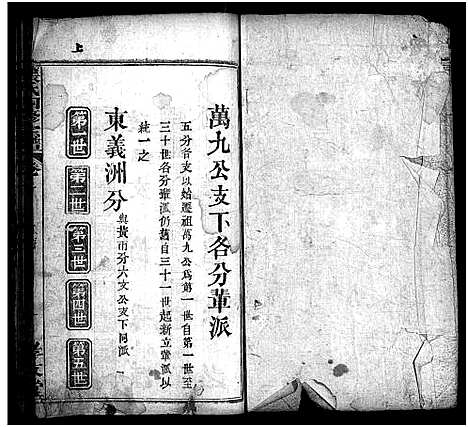 上
萬九公支下各分輩派
五分各支以始遷祖萬九公爲第一世自第一世至
三十世各分輩派仍舊自三十一世起新立輩派以
統一之
東義洲分與黃甫分六支公支下同派
第一世
第二世
第三世
第四世
第五世